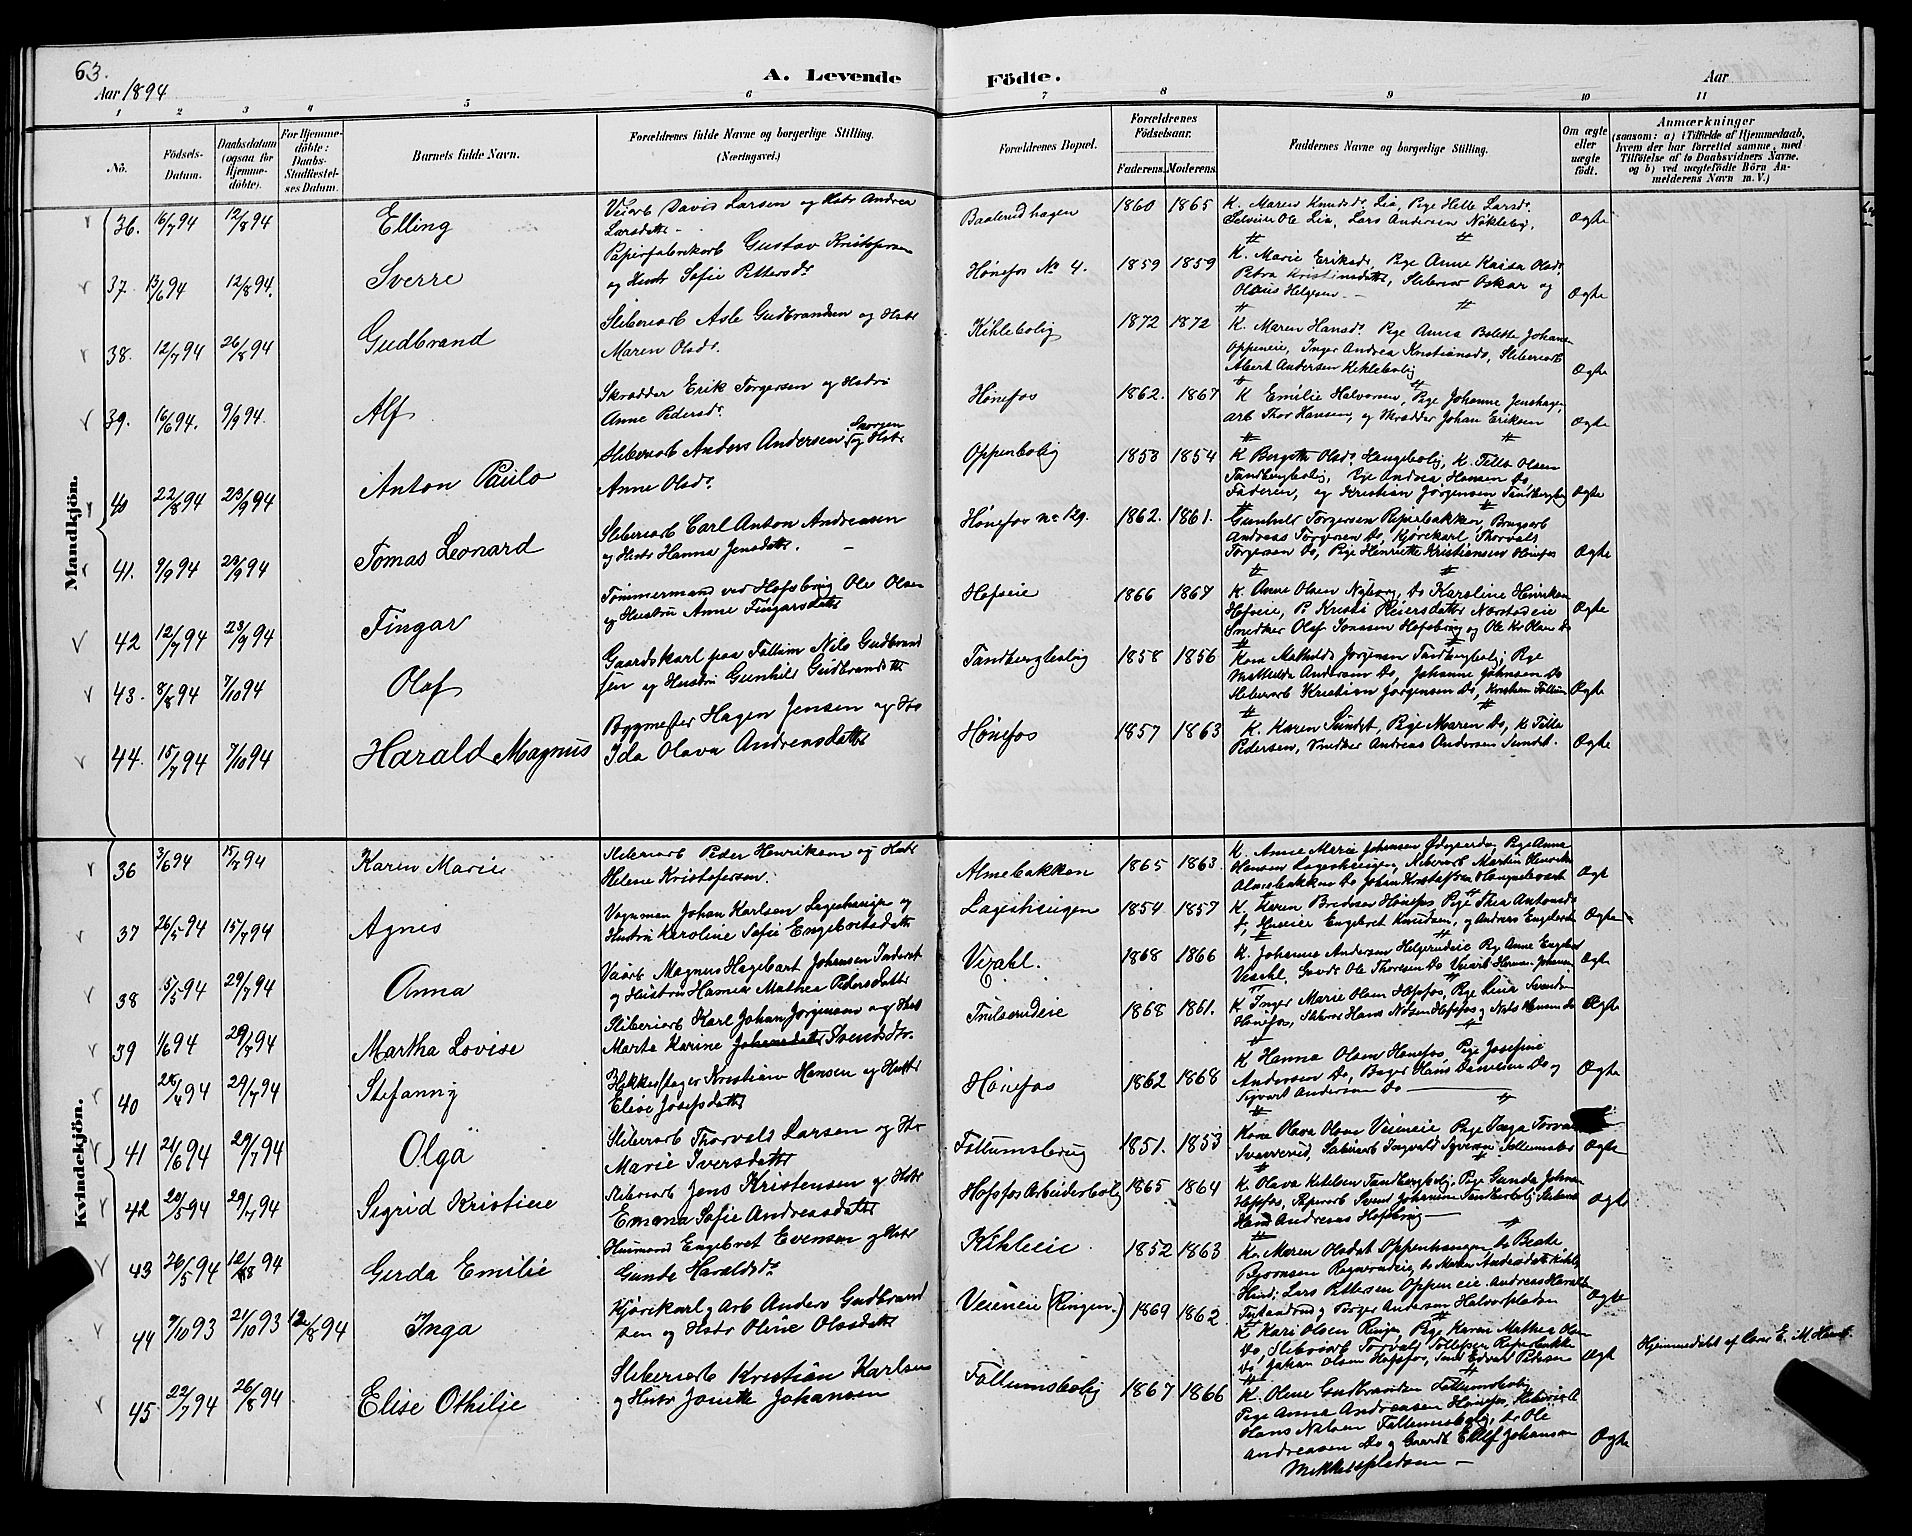 63.
Aar 1894
A. Levende
Födte.
Aar
1 2 3 4 5 6 7 8 9 10 11
No.
Födsels-
Datum.
Daabsdatum
(ogsaa for
Hjemme-
döbte).
For Hjemme-
döbte:
Daabs-
Stadfæstel-
ses Datum.
Barnets fulde Navn.
Forældrenes fulde Navne og borgerlige Stilling.
(Næringsvei.)
Forældrenes Bopæl.
Forældrenes
Födselsaar.
Faderens. Moderens.
Faddernes Navne og borgerlige Stilling.
Om ægte
eller
uægte
födt.
Anmærkninger
(saasom: a) i Tilfælde af Hjemmedaab,
hvem der har forrettet samme, med
Tilföielse af to Daabsvidners Navne,
og b) ved uægtefödte Börn An-
melderens Navn m. V.)
Mandkjön.
36. 16/7 94 12/8 94 Elling
Veiarb David Larsen og Hstr Andrea
Larsdatter
Baalerudhagen 1860 1865
K. Maren Knudsd. Lia, Pige Helle Larsd.
Selveier Ole Lia, Lars Andersen Nökleby.
Ægte
37. 13/6 94 12/8 94. Sverre
Papirfabrikarb Gustav Kristofersen
og Hustr Sofie Pettersdr
Hönefos No 4. 1859 1859
K. Marie Eriksd., Pige Anne Kaisa Olsdr
Petra Kristinsdatter, Sliberiar Oskar og
Olaus Helgesen
Ægte
38. 12/7 94 26/8 94 Gudbrand
Sliberiarb Asle Gudbrandsen og Hstr
Maren Olsdr.
Kihlebolig 1872 1872
K. Maren Hansdr. Pige Anna Bolette Johans
Oppeneie, Inger Andrea Kristiansd., Sliberiarb
Albert Andersen Kihlebolig
Ægte
39. 16/6 94. 9/9 94. Alf
Skrædder Erik Torgersen og Hstr
Anne Pedersdr.
Hönefos 1862. 1867
K Emilie Halvorsen, Pige Johanne Jenshagen
arb Thor Hansen, og Skrædder Johan Eriksen
Ægte
40 22/8 94 23/9 94 Anton Paulo
Sliberiarb Anders Andersen og Hstr
Anne Olsdr.
Oppenbolig 1853 1854
K Bergitte Olsdr. Haugebolig, K. Tilla Olsen
Tandbergbolig, Pige Andrea Hansen Do,
Faderen, og Kristian Jörgensen Tandbergbg
Ægte
41. 9/9 94 23/9 94 Tomas Leonard
Sliberiarb Carl Anton Andreasen
og Hustr Hanna Jensdatter.
Hönefos No 129. 1862. 1861.
Gunhild Torgersen Riperbakken, Brugsarb
Andreas Torgersen Do, Kjörekarl Thorvald
Torgersen Do, Pige Henriette Kristiansen Hönefos
Ægte
42 12/7 94 23/9 94 Fingar
Tömmermand ved Hofsbrug Ole Olsen
og Hustru Anne Fingarsdatter
Hofseie 1866 1867
K. Anne Olsen Nyborg, Do Karoline Henriksen
Hofseie, P. Kristi Reiersdatter Norstadeie
Snedker Olaf Jonssen Hofsbrug og Ole Kr Olsen Do
Ægte
43. 8/8 94 7/10 94 Olaf
Gaardskarl paa Follum Nils Gudbrand
sen og Hustru Gunhild Gudbrandsdtr
Tandbergbolig 1858 1856
Kone Mathilde Jörgensen Tandbergbolig, Pige
Mathilde Andersen Do, Johanne Johnsen Do
Sliberarb Kristian Jörgensen Do, Kristian Follum
Ægte
44. 15/7 94 7/10 94 Harald Magnus
Bygmester Hagen Jensen og Hst
Ida Olava Andreasdatter
Hönefos 1857 1863
K. Karen Sundet, Pige Maren Do, K Tilla
Pedersen, Snedker Andreas Andersen Sundet.
Ægte
Kvindekjön.
36 3/6 94 15/7 94 Karen Marie
Sliberiarb Peder Henriksen og Hustr
Helene Kristofersen.
Almebakken 1865 1863.
K. Anne Marie Johansen Ödegaarden, Pige Anna
Hansen Lageshaugen, Sliberarb Martin Henriksen
Almebakken Do Johan Kristoffersen
Ægte
37 26/5 94 15/7 94 Agnes
Vognman Johan Karlsen Lageshaugen og
Hustru Karoline Sofie Engebretsdatter
Lageshaugen 1854 1857
K. Karen Bredesen Hönefos Pige Thea Antonsd.
Engebret Knudsen, og Anders Engebretsen
Ægte
38 5/5 94 29/7 94 Anna
Magnus Hagebart Johansen
og Hustru Hanna Mathea Pedersdatter
Vexahl. 1868 1866
K. Johanne Andersen Helgerudeie Pige Anne Engebret
Vexahl, Ole Thoresen Do Veiarb Herman Johansen
Ægte
39 1/6 94 29/7 94 Martha Lovise
Sliberiarb Karl Johan Jörgensen og Hust
Marte Karine Johannesdatter Svendsdr.
Trulserudeie 1868 1861.
K Inger Marie Olsen Hofsfos, Pige Lina Svendsen
Hönefos, Hans Nilsen Hofsfos og Nils Hansen Do
Ægte
40 28/4 94 29/7 94 Stefanny
Kristian Hansen og Hustr
Elise Josefsdatter
Hönefos 1862 1868
K Hanna Olsen Hönefos, Pige Josefine
Andersen Do, Bager Hans Danielsen Do og
Sigvart Andersen Do
Ægte
41 21/6 94 29/7 94 Olga
Sliberiarb Thorvald Larsen og Hst
Marie Iversdatter
Follumsbrug 1851. 1853
Kone Olava Olsen Veieneie Pige Inga Torvalds
Svarverud, Sliberarb Ingvald Syversen Follumsbrug
Ægte
42 20/5 94 29/7 94 Sigrid Kristine
Sliberiarb Jens Kristensen og Hstr
Emma Sofie Andreasdatter
Hofsfos Arbeiderbolig 1865 1864
K. Olava Ketilsen Tandbergbolig, Pige Gunda Johnsen
Hofsfos, Papirarb Svend Johannsen Tandbergbolig
Hans Andreasen Hofsbrug
Ægte
43 26/5 94 12/8 94 Gerda Emilie
Husmand Engebret Evensen og Hstr
Gunda Haraldsdr.
Kihleeie 1852 1863
K. Maren Olsdat Oppenhaugen, Do Beate
Bjornsen Do Maren Andreasdatter Kihle
Husm: Lars Pettersen Oppeneie. Andreas Harald
og Torger Andersen Halvorspladsen
Ægte
44 7/10 93 21/10 93 12/8 94 Inga
Kjörekarl og Arb Anders Gudbrand
sen og Hstr Oline Olsdatter
Veieneie (Ringen.) 1869 1862
K Kari Olsen Ringen, Pige Karen Mathea Olsen
Do, Sliberiarb Torvald Tollefsen Riperbakke
Do Johan Olsen Hofsfos, Edvard Petersen
Ægt
Hjemmedöbt af
45 22/7 94 26/8 94 Elise Othilie
Sliberiarb Kristian Karlsen
og Hustr Jonette Johansen
Follumsbolig 1867 1866
K. Oline Gudbrandsen Follumsbolig
Pige Anna Andreasen Hönefos, Sliberiarb
Hans Nilsen Follumsbolig, Do Ole
Andreasen Do og Ellef Johansen
Mikkelspladsen
Ægte